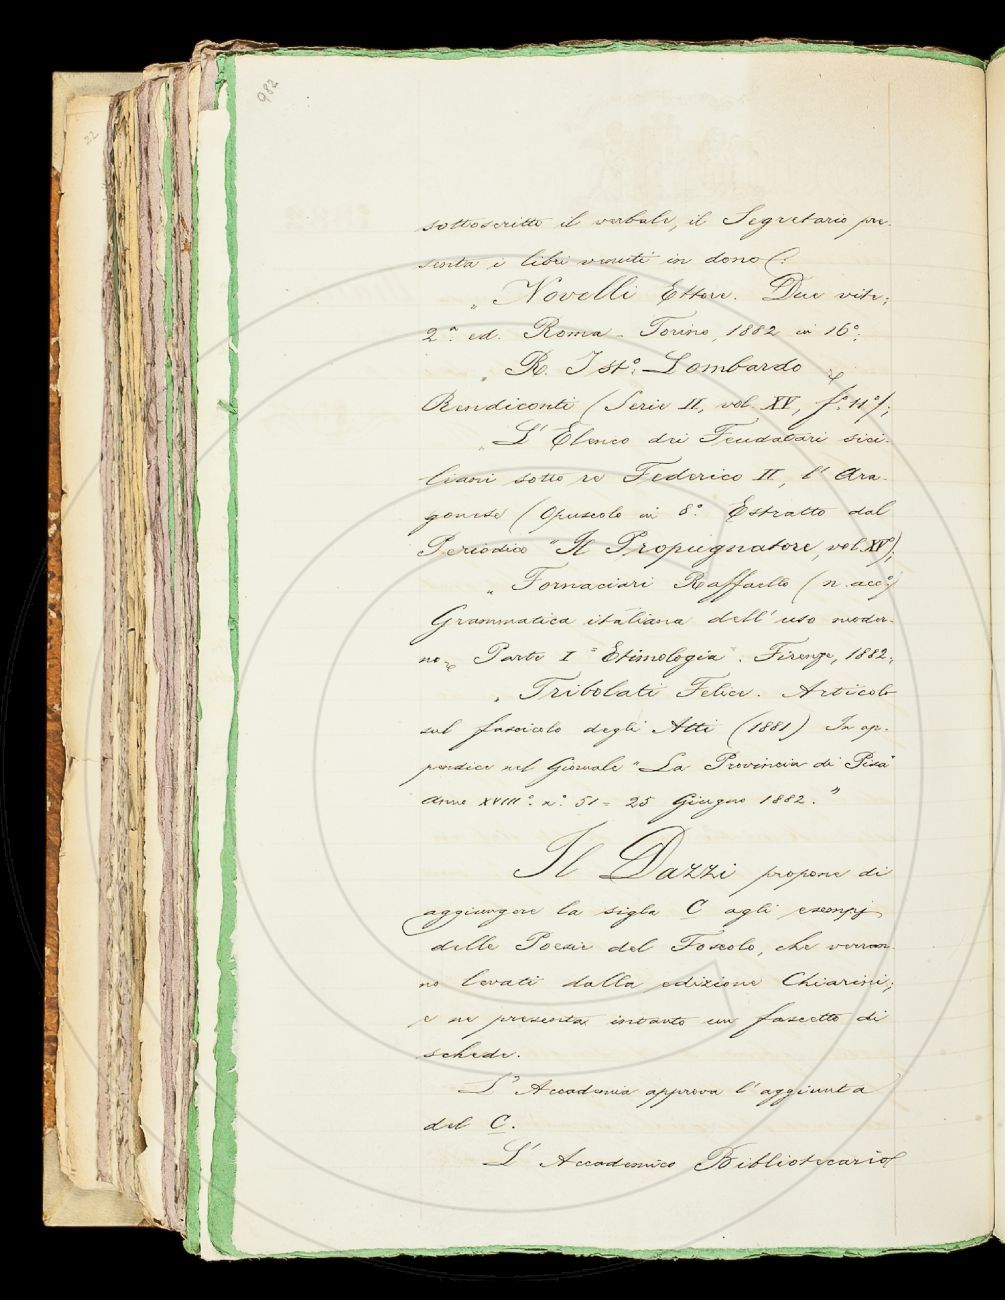 982
22
sottoscritto il verbale, il Segretario pre-
senta i libri venuti in dono:
„ Novelli Ettore. Due vite;
2.ª ed. Roma - Torino, 1882 in 16.°;
„ R. Ist.° Lombardo
Rendiconti (Serie II, vol. XV, f.° 11.°);
„ L' Elenco dei Feudatari sici-
liani sotto re Federico II, l' Ara-
gonese (Opuscolo in 8.° Estratto dal
Periodico "Il Propugnatore, vol. XV°);
„ Fornaciari Raffaello (n. acc.°)
Grammatica italiana dell' uso moder-
no, Parte I "Etimologia". Firenze, 1882;
„ Tribolati Felice. Articolo
sul fascicolo degli Atti (1881) In ap-
pendice nel Giornale "La Provincia di Pisa"
anno XVIII°. n.° 51 = 25 Giugno 1882."
Il Dazzi propone di
aggiungere la sigla C agli esempj
delle Poesie del Foscolo, che verran-
no levati dalla edizione Chiarini;
e ne presenta intanto un fascetto di
schede.
L' Accademia approva l' aggiunta
del C.
L' Accademico Bibliotecario